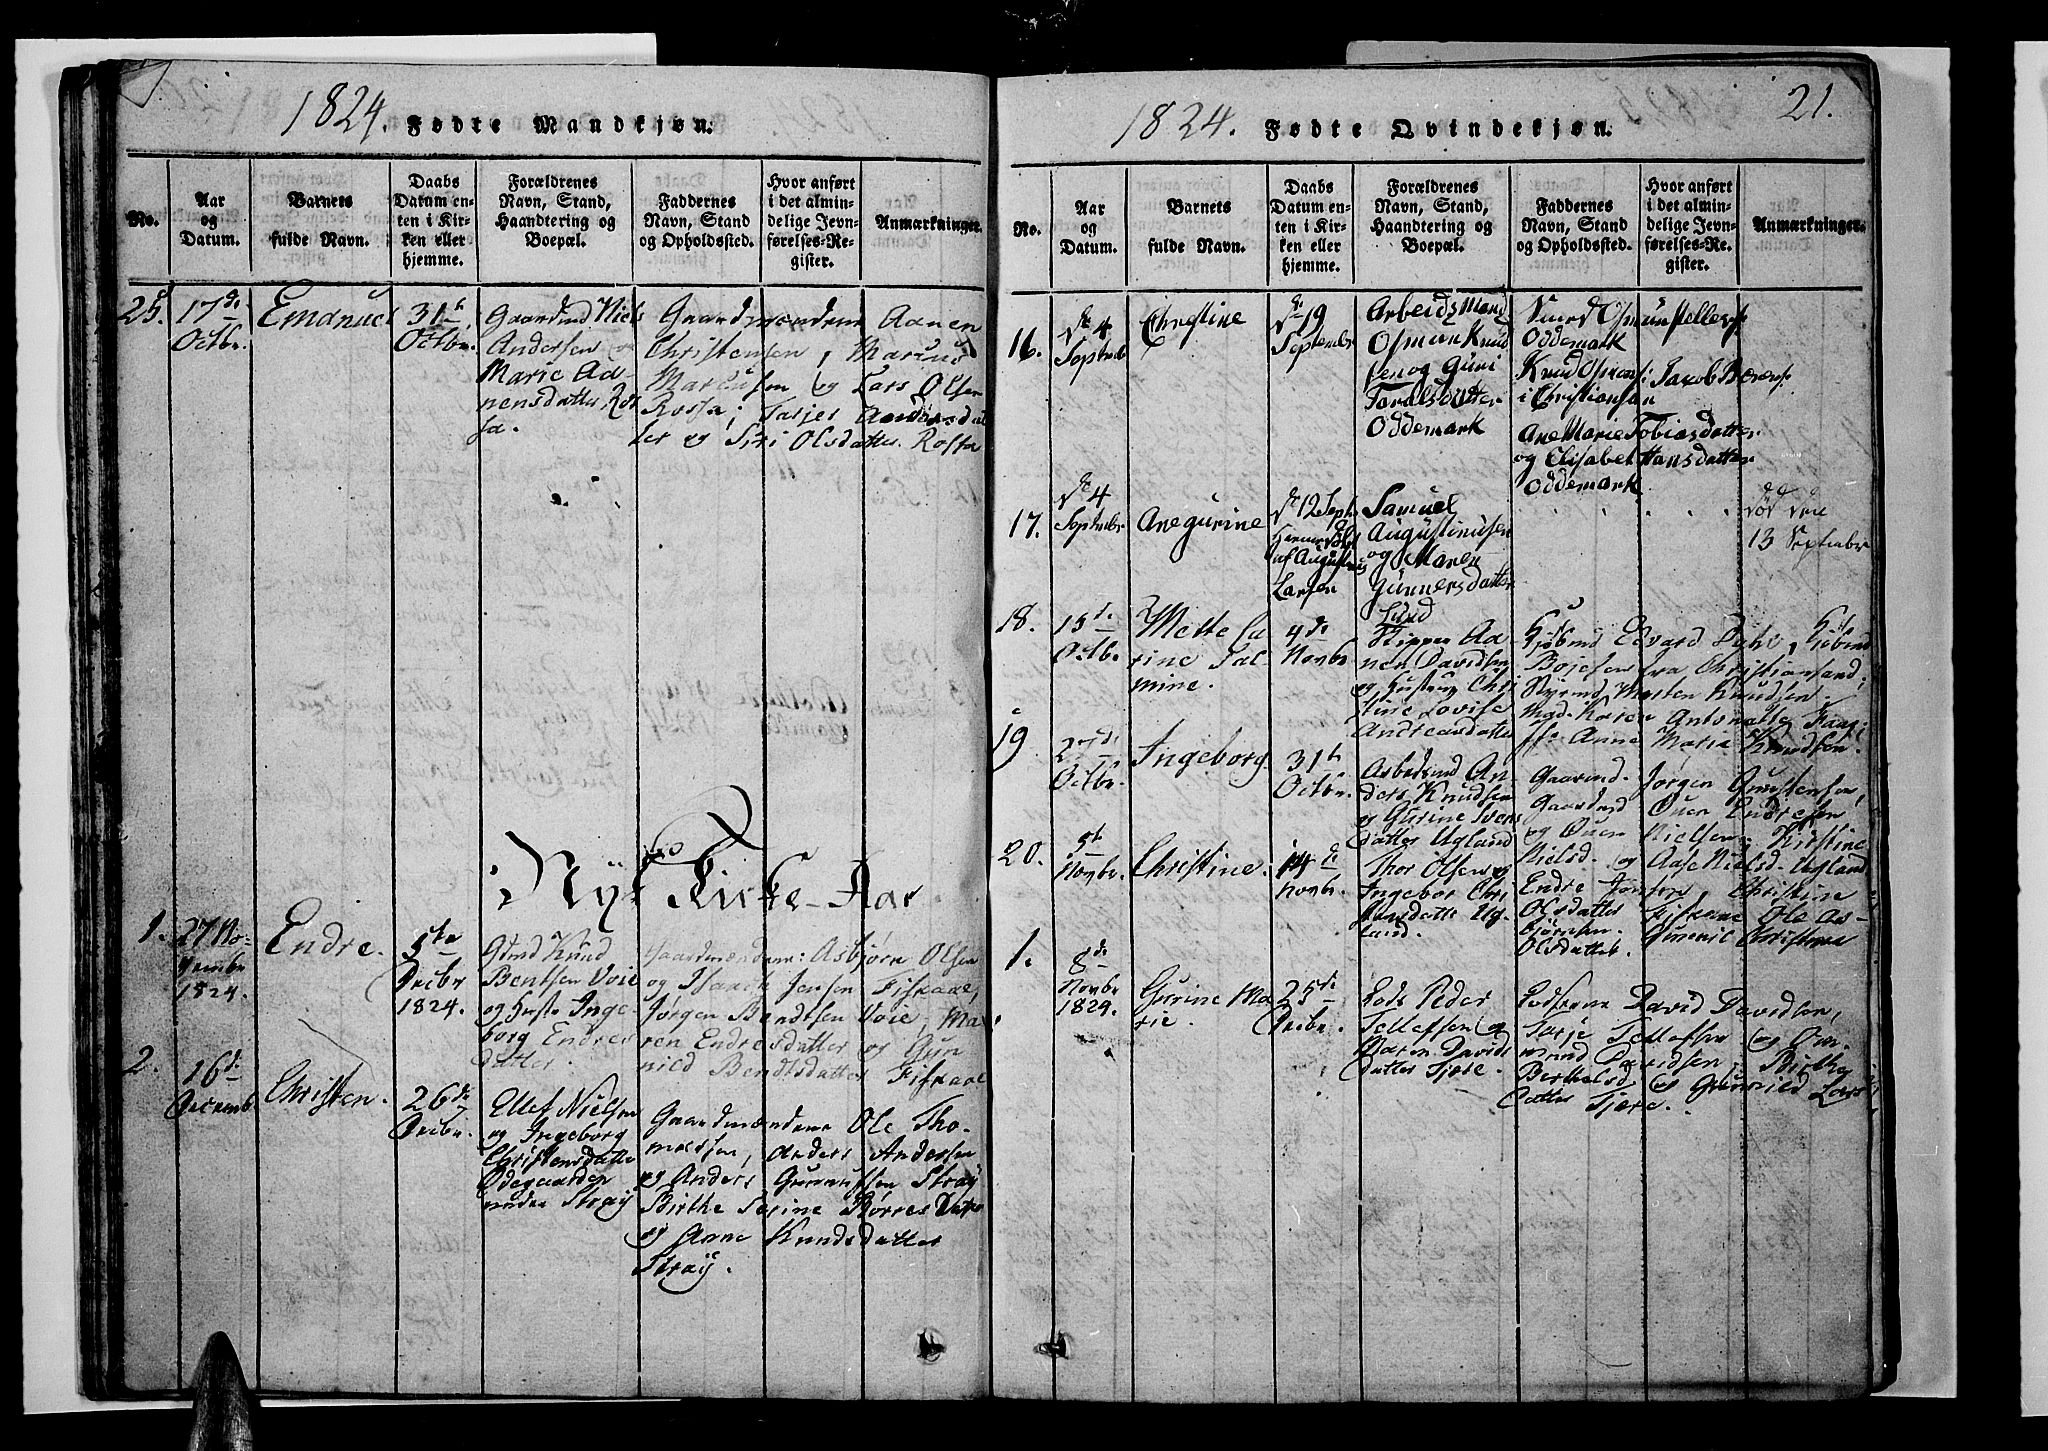 1824. Fødte Mandkjøn.
No.
Aar
og
Datum.
Barnets
fulde Navn.
Daabs
Datum en-
ten i Kir-
ken eller
hjemme.
Forældrenes
Navn, Stand,
Haandtering og
Boepæl.
Faddernes
Navn, Stand
og Opholdssted.
Hvor anført
i det almin-
delige Jevn-
førelses-Re-
gister.
Anmarkninger.
25. 17de
Octbr.
Emanuel
31te
Octbr.
Gaardmd Niels
Andersen og
Marie Aa-
nensdatter, Ros-
sa.
Gaardmændene Aanen
Christensen, Marcus
Marcusen og Lars Olsen
Rossa; Tarjer Andersdat-
ter og Siri Olsdatter Rossa
Nyt Kirke-Aar.
1. 27 No-
vembr
1824.
Endre.
5te
Decbr
1824.
Gmd Knud
Bentsen Voie
og Hustr Inge-
borg Endres
datter.
Gaardmændene: Asbjørn Olsen
og Jensen Fiskaae,
Jørgen Bendtsen Voie, Ma-
ren Endresdatter og Gun
nild Bendtsdatter Fiskaae
2. 16de
Decemb.
Christen.
26de
Decbr.
Ellef Nielsen
og Ingeborg
Christensdatter
Ødegaarden
under Straÿ
Gaardmændene Ole Tho-
massen, Anders Andersen
og Anders Gunnufsen Straÿ
Birthe Serine Børres Datter
og Anne Knudsdatter
Straÿ.
1824. Fødte Qvindekjøn. 21.
No.
Aar
og
Datum.
Barnets
fulde Navn.
Daabs
Datum en-
ten i Kir-
ken eller
hjemme.
Forældrenes
Navn, Stand,
Haandtering og
Boepæl.
Faddernes
Navn, Stand
og Opholdssted.
Hvor anført
i det almin-
delige Jevn-
førelses-Re-
gister.
Anmarkninger.
16. d 4
Septembr
Christine
d 19
Septembr
Arbeids Mand
Osmun Knud
sen og Guri
Taralsdatter
Oddemark
Oddemark
Knud Osmunsen Jacob
i Christiansan
Ane Marie Tobiasdatter
og Elisabet Hansdatter
Oddemark
17. d 4
Septembr
Anegurine
d 12 Sept
af Augustinus
Larsen
Samuel
Augustinusen
og Maren
Gunnersdatter
Lund
død den
13 September
18. 15de
Octbr
Mette Ca
rine Sal-
mine.
4de
Novbr
Skipper Aa-
nen Davidsen
og Hustru Chri
stine Lovise
Andreasdatter
Kjøbmd Edvard Dahl, Kjøbmd
Bojesen fra Christiansand;
Styrmd Morten Knudsen.
Mad. Karen Antonette
Anne Maria Knudsen.
19 27de
Octbr.
Ingeborg.
31te
Octbr.
Arbeidsmd An-
ders Knudsen
og Gurine Ivers
datter Ugland
Gaardmd Jørgen
Gaardmd Ouen Endresen
og Ouen Nielsen, Kirstine
Nielsd. og Aase Nielsd. Ugland
20. 5te
Novbr.
Christine.
14de
Novbr.
Thor Olsen og
Ingebor Chri
stensdatter Ug-
land.
Endre Jonsen, Christine
Olsdatter Fiskaae Ole As-
bjørnsen. Gunnil Christine
Olsdatter.
1. 8de
Novbr
1824.
Gurine Ma-
rie.
25de
Decbr.
Lods Peder
Tellefsen og
Maren Davids
datter Fjære.
Lodserne David Davidsen,
Tarje Tellefsen og Om-
mund Davidsen, Birthe
Berthelsd og Gunnild Lars
datter Fjære.